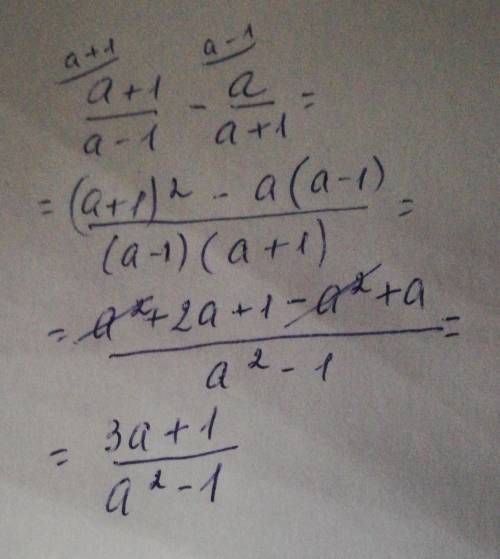 a+1 a-1
a+1/a-1 - a/a+1 =
= (a+1)² - a(a-1)/(a-1)(a+1) =
= a²+2a+1-a²+a/a²-1 =
= 3a+1/a²-1